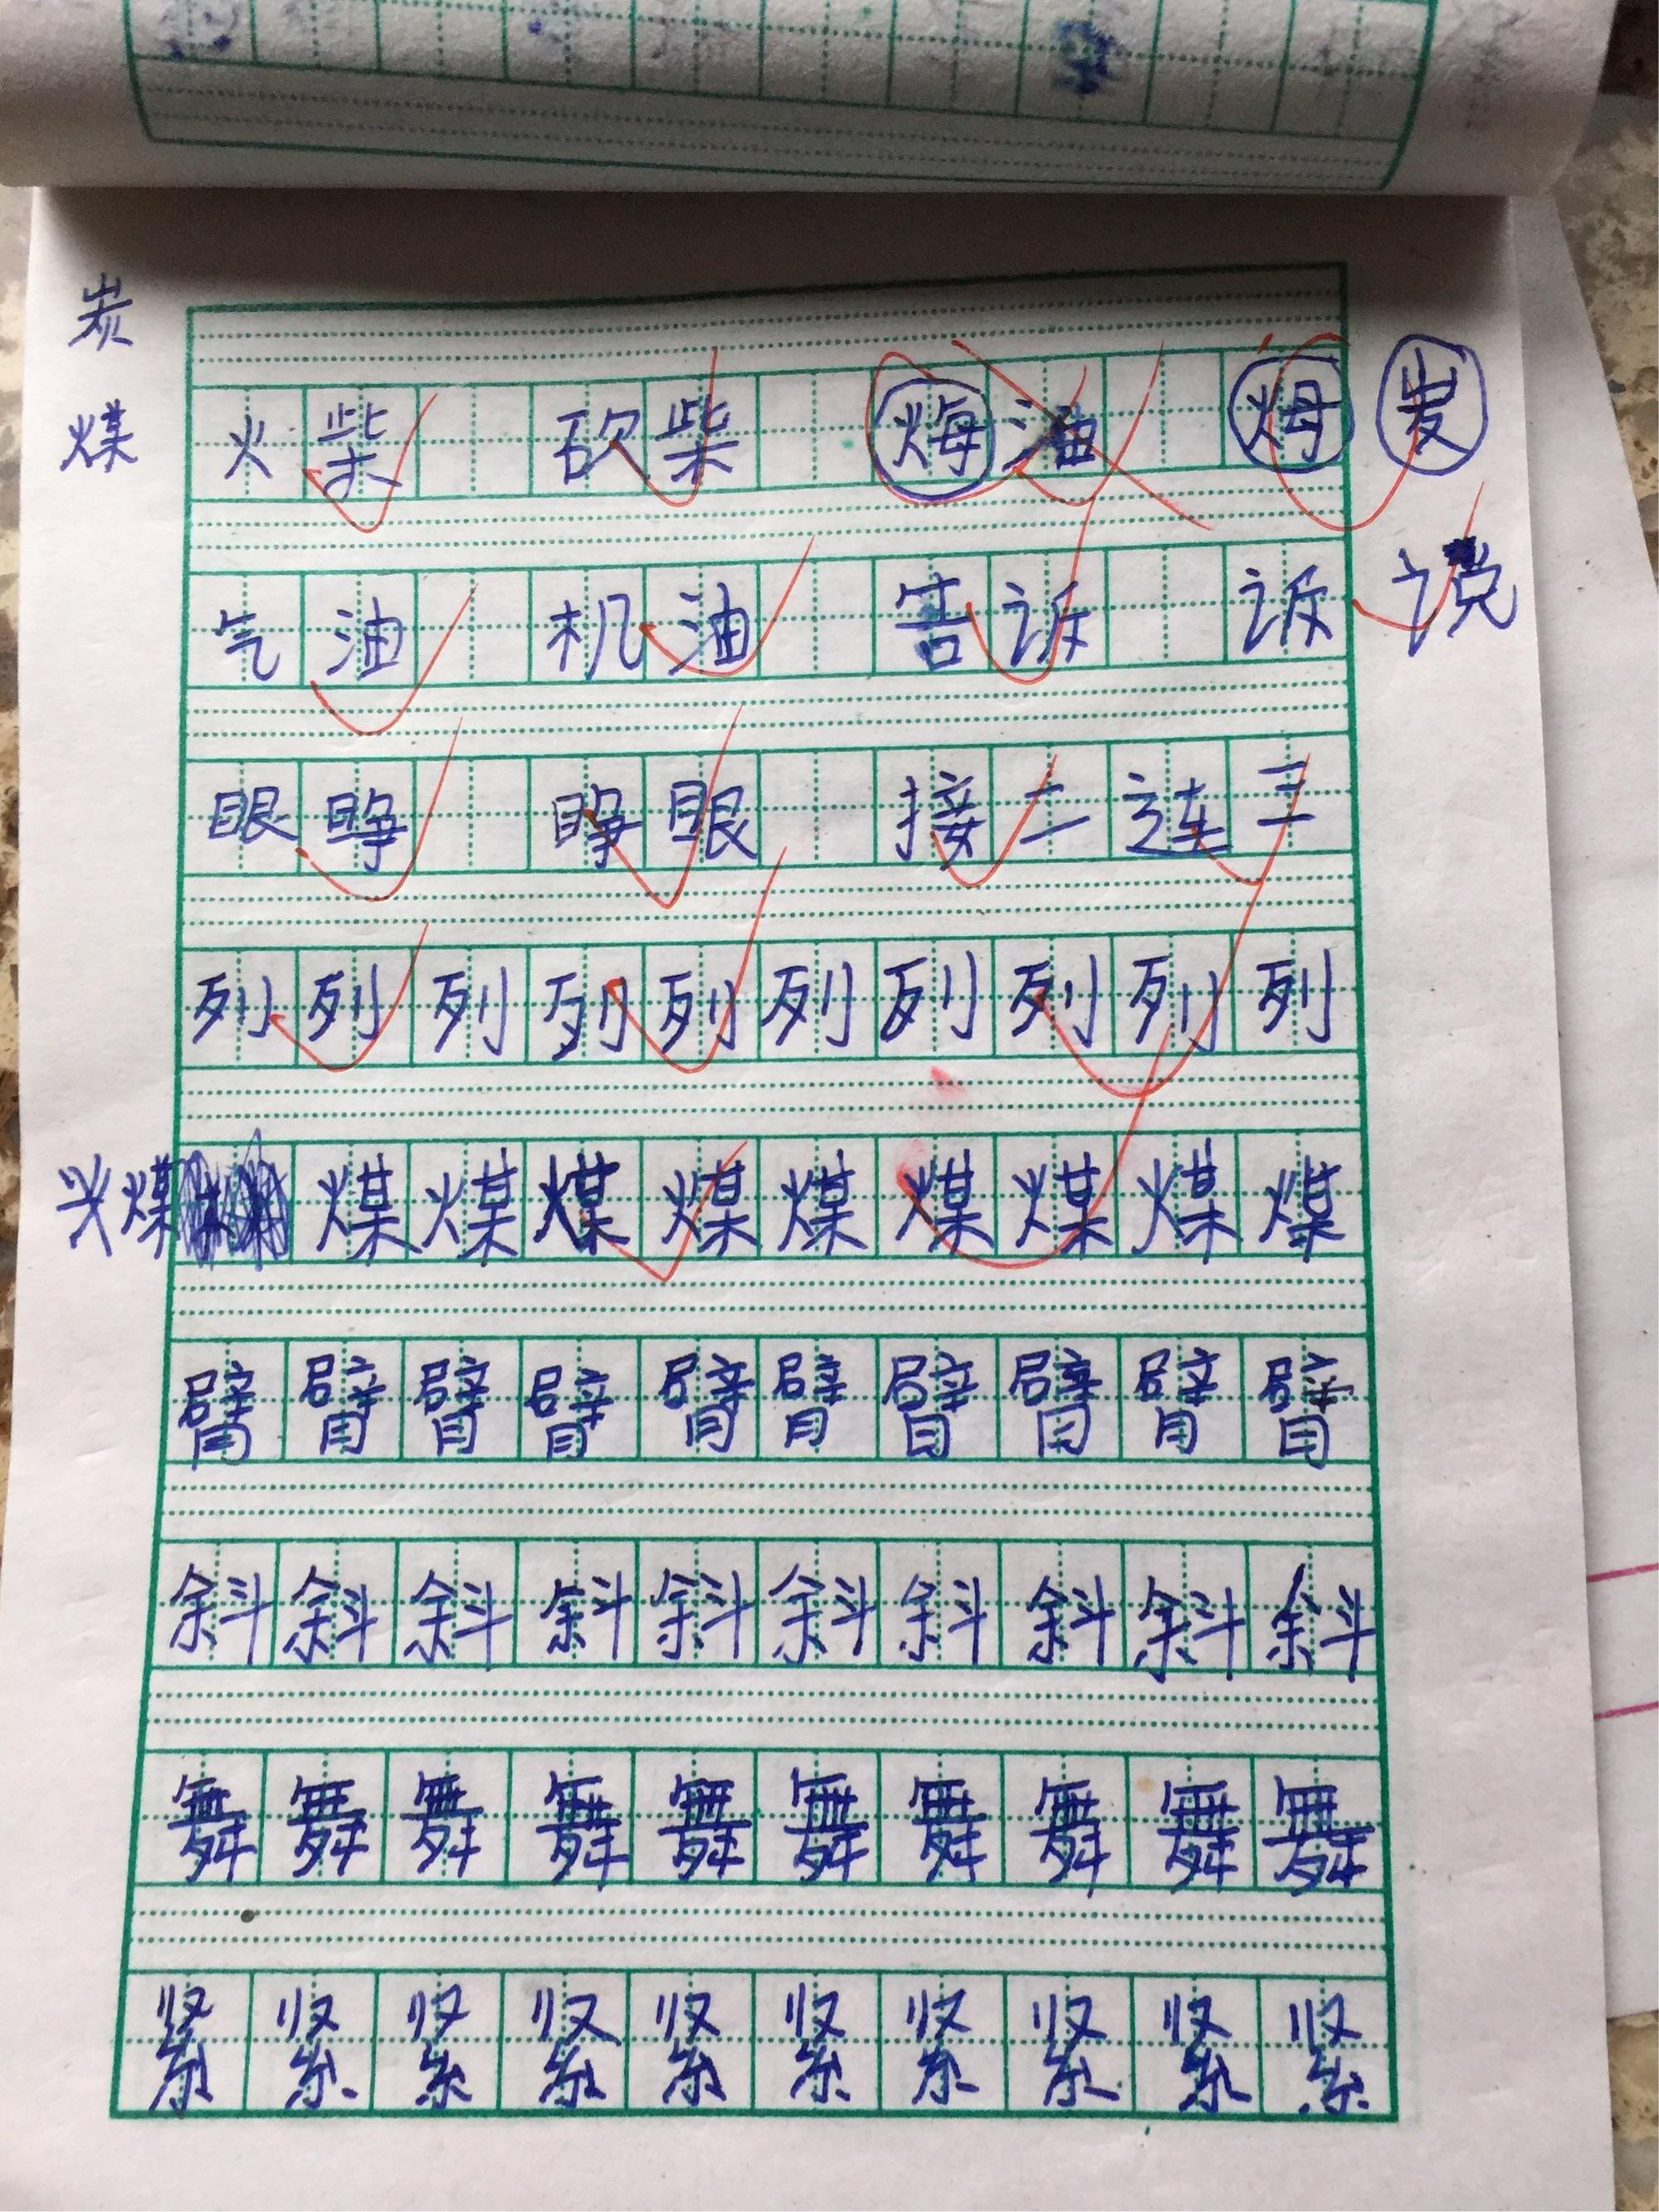 炭
煤
火柴 砍柴 油
气油 机油 告诉 诉说
眼睁 睁眼 接二连三
列列列列列列列列列列
煤煤煤煤煤煤煤煤煤煤
臂臂臂臂臂臂臂臂臂臂
斜斜斜斜斜斜斜斜斜斜
舞舞舞舞舞舞舞舞舞舞
紧紧紧紧紧紧紧紧紧紧